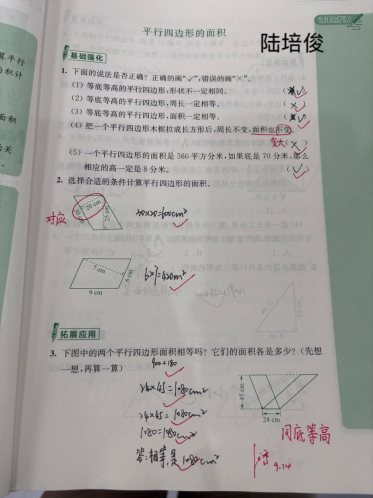 平行四边形的面积
陆培俊
基础强化
1. 下面的说法是否正确？正确的画“√”，错误的画“×”。
(1) 等底等高的平行四边形，形状不一定相同。 (√)
(2) 等底等高的平行四边形，周长一定相等。 (×)
(3) 等底等高的平行四边形，面积一定相等。 (√)
(4) 把一个平行四边形木框拉成长方形后，周长不变，面积也不变。
变大 (×)
(5) 一个平行四边形的面积是 560 平方分米，如果底是 70 分米，那么
相应的高一定是 8 分米。 (√)
2. 选择合适的条件计算平行四边形的面积。
对应
20 cm
7 cm
6 cm
9 cm
拓展应用
3. 下图中的两个平行四边形面积相等吗？它们的面积各是多少？(先想
一想，再算一算)
900+180
24×45=1080cm²
24×45=1080cm²
1080=1080cm²
答:相等,是1080cm²
45 cm
24 cm
同底等高
9.24